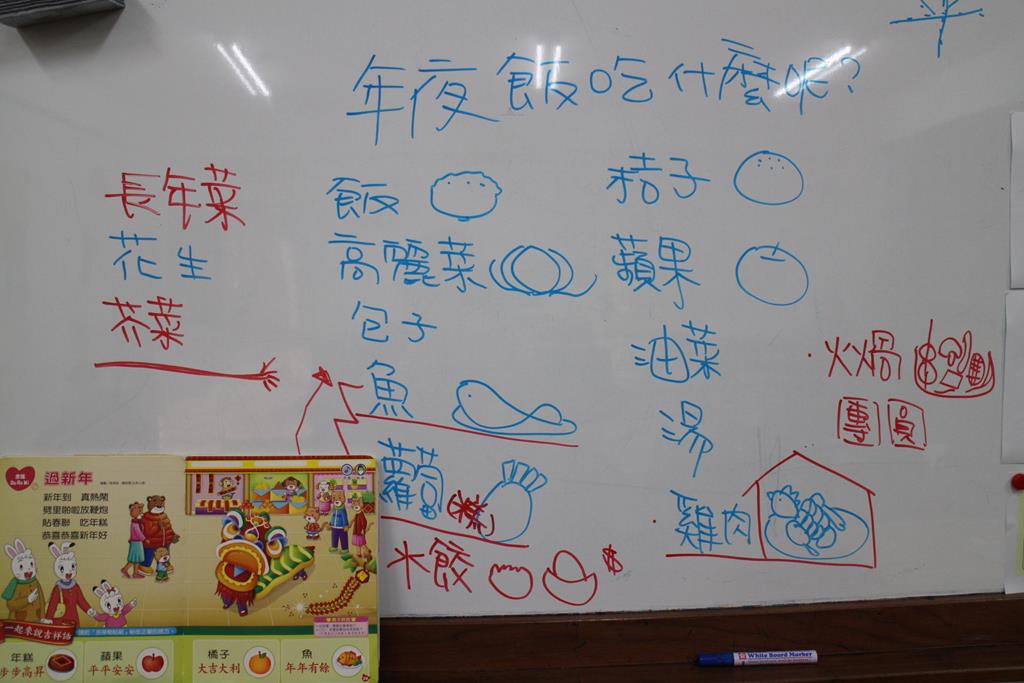 年夜飯吃什麼呢?
長年菜
花生
芥菜
飯
高麗菜
包子
魚
蘿蔔(糕)
水餃
桔子
蘋果
油菜
湯
雞肉
火鍋
團圓
過新年
新年到 真熱鬧
劈里啪啦放鞭炮
貼春聯 吃年糕
恭喜恭喜新年好
一起來說吉祥話
年糕
步步高昇
蘋果
平平安安
橘子
大吉大利
魚
年年有餘
White Board Marker